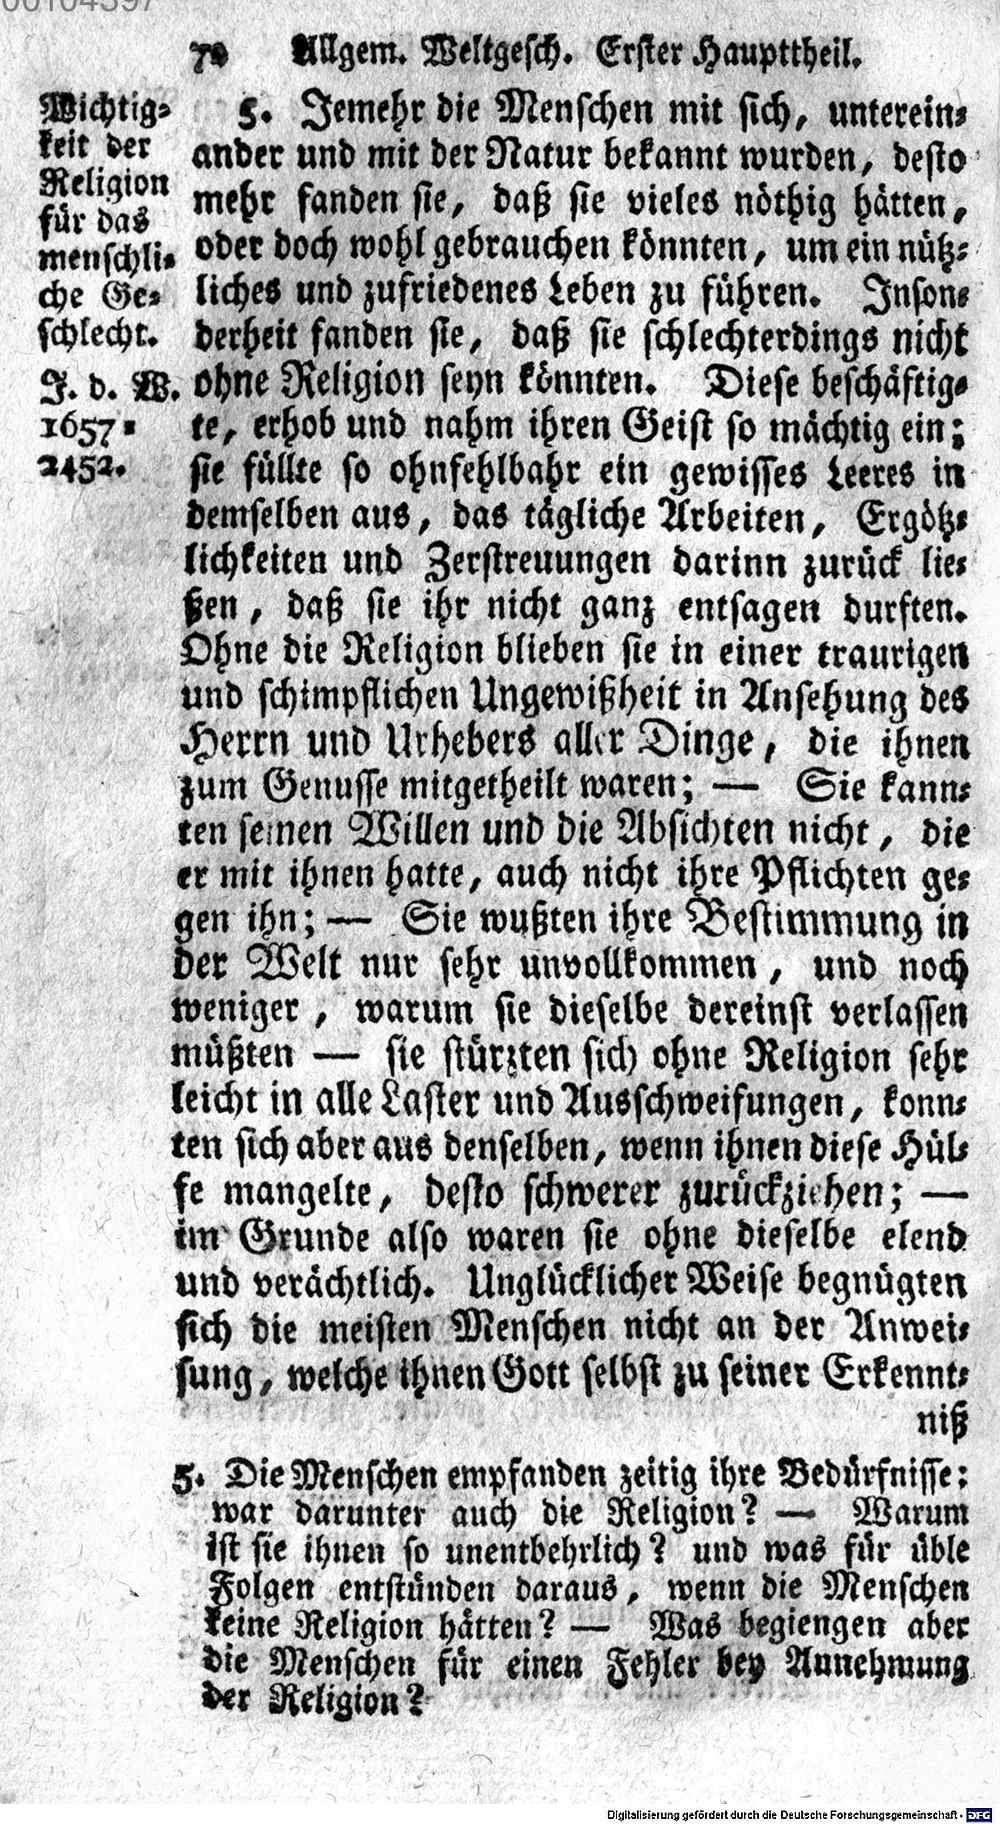 00104397
70 Allgem. Weltgesch. Erster Haupttheil.
Wichtig-
keit der
Religion
für das
menschli-
che Ge-
schlecht.
J. d. W.
1657-
2452.
5. Jemehr die Menschen mit sich, unterein-
ander und mit der Natur bekannt wurden, desto
mehr fanden sie, daß sie vieles nöthig hätten,
oder doch wohl gebrauchen könnten, um ein nütz-
liches und zufriedenes Leben zu führen. Inson-
derheit fanden sie, daß sie schlechterdings nicht
ohne Religion seyn könnten. Diese beschäftig-
te, erhob und nahm ihren Geist so mächtig ein;
sie füllte so ohnfehlbahr ein gewisses Leeres in
demselben aus, das tägliche Arbeiten, Ergötz-
lichkeiten und Zerstreuungen darinn zurück lie-
ßen, daß sie ihr nicht ganz entsagen durften.
Ohne die Religion blieben sie in einer traurigen
und schimpflichen Ungewißheit in Ansehung des
Herrn und Urhebers aller Dinge, die ihnen
zum Genusse mitgetheilt waren; — Sie kann-
ten seinen Willen und die Absichten nicht, die
er mit ihnen hatte, auch nicht ihre Pflichten ge-
gen ihn; — Sie wußten ihre Bestimmung in
der Welt nur sehr unvollkommen, und noch
weniger, warum sie dieselbe dereinst verlassen
müßten — sie stürzten sich ohne Religion sehr
leicht in alle Laster und Ausschweifungen, konn-
ten sich aber aus denselben, wenn ihnen diese Hül-
fe mangelte, desto schwerer zurückziehen; —
im Grunde also waren sie ohne dieselbe elend
und verächtlich. Unglücklicher Weise begnügten
sich die meisten Menschen nicht an der Anwei-
sung, welche ihnen Gott selbst zu seiner Erkennt-
niß
5. Die Menschen empfanden zeitig ihre Bedürfnisse:
war darunter auch die Religion? — Warum
ist sie ihnen so unentbehrlich? und was für üble
Folgen entstünden daraus, wenn die Menschen
keine Religion hätten? — Was begiengen aber
die Menschen für einen Fehler bey Annehmung
der Religion?
Digitalisierung gefördert durch die Deutsche Forschungsgemeinschaft - DFG